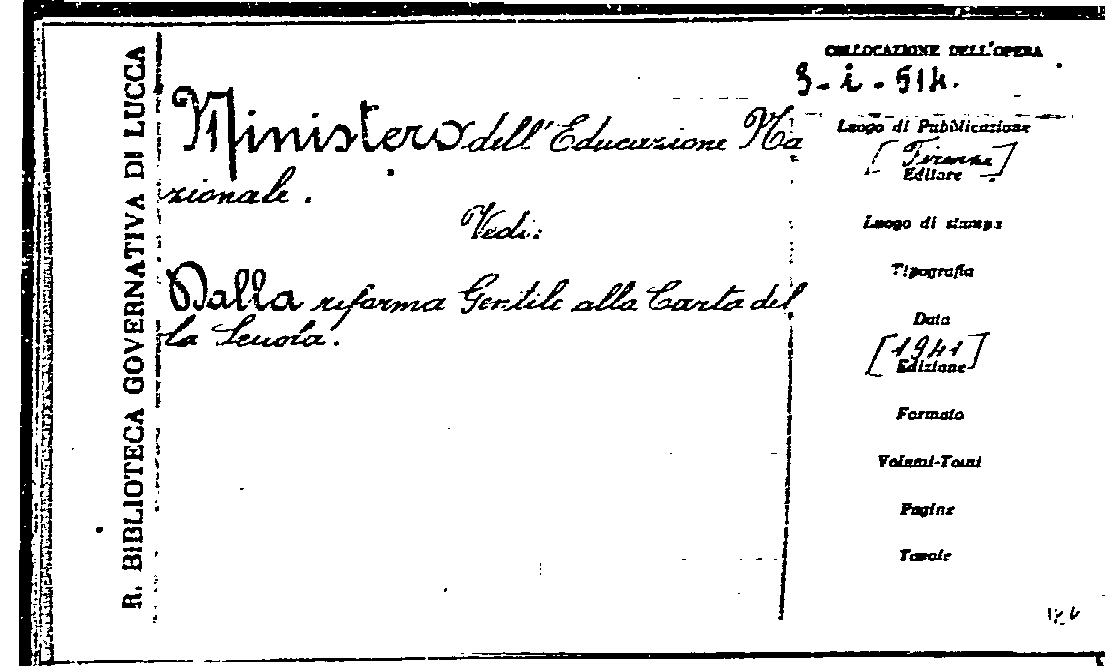 R. BIBLIOTECA GOVERNATIVA DI LUCCA
Ministero dell'Educazione Na
zionale.
Vedi:
Dalla riforma Gentile alla Carta del
la Scuola.
COLLOCAZIONE DELL'OPERA
3-i-514.
Luogo di Pubblicazione
[Firenze]
Editore
Luogo di stampa
Tipografia
Data
[1941]
Edizione
Formato
Volumi-Tomi
Pagine
Tavole